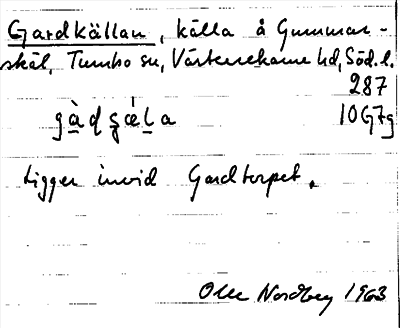 Gardkällan, källa å Gummar-
skäl, Tumbo sn, Västerrekarne hd, Söd. l.
287
10G7g
Ligger invid Gardtorpet.
Olle Nordberg 1963